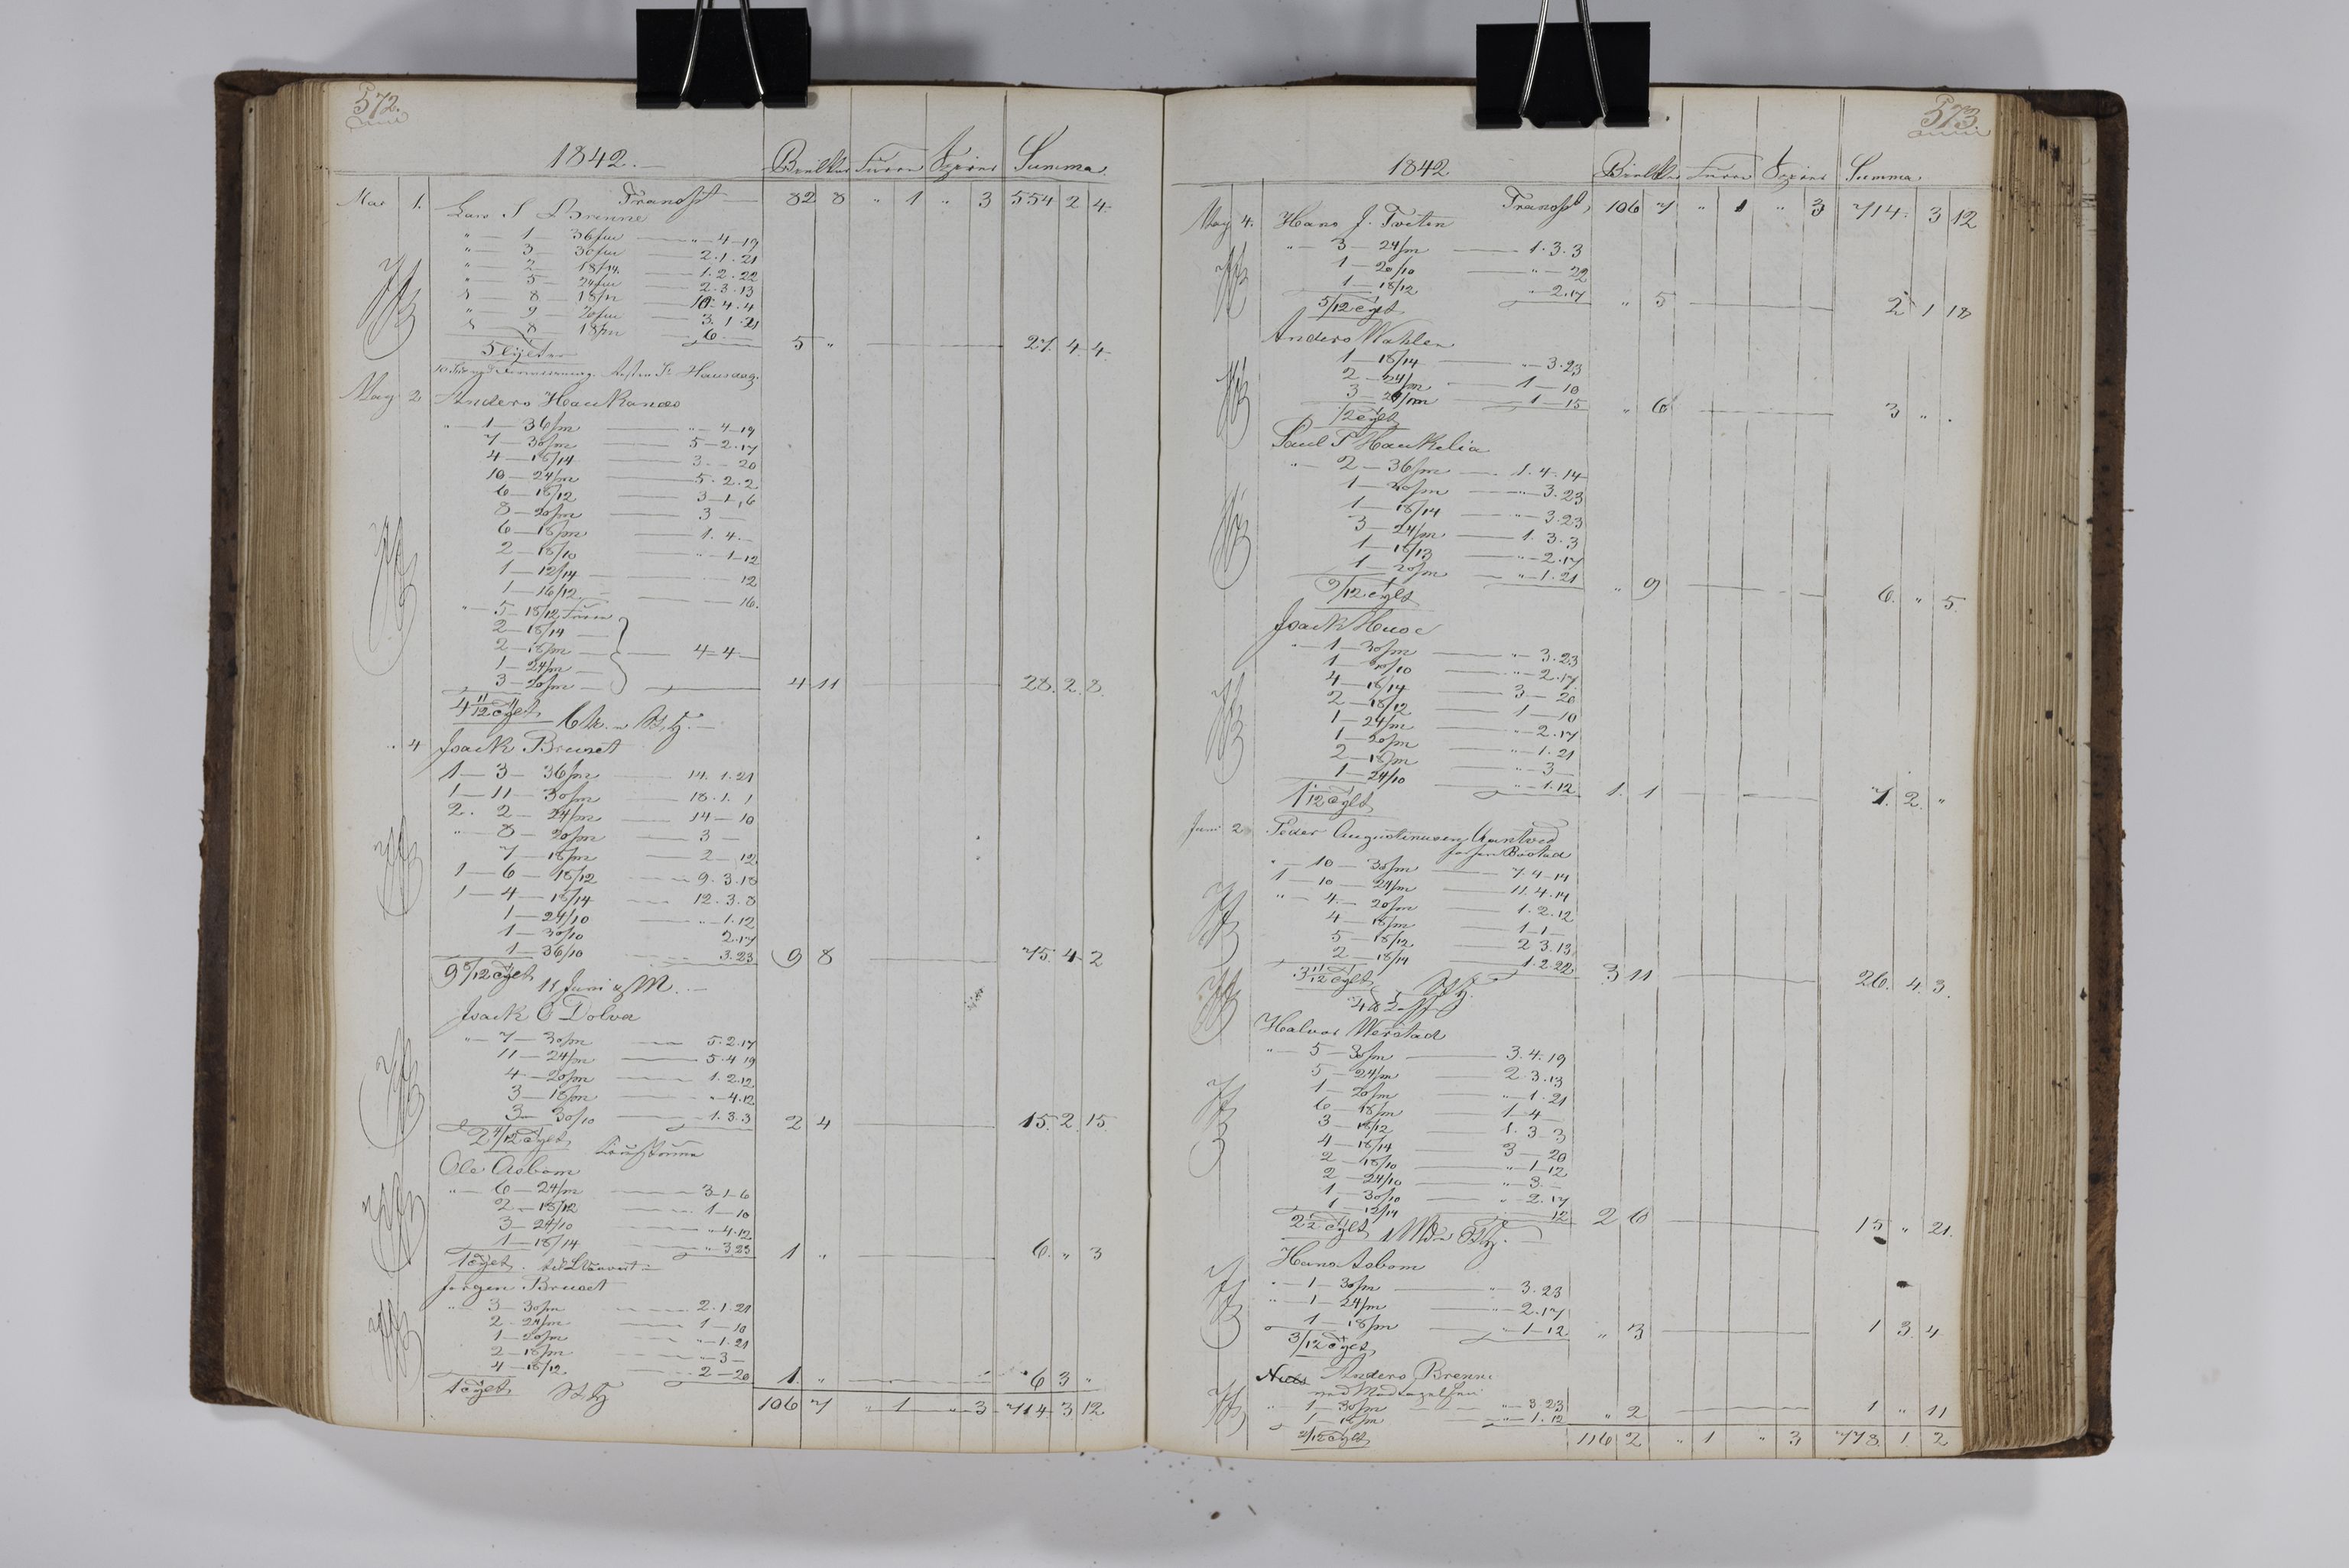 572.
1842.— Bielker Furre Summa
Transpt — 82 8 " 1 " 3 554 2 4
Mai 1. Lars S Brenne
" — 1 — 36/m — " — 4 — 19
" — 3 — 30/m — 2. 1. 21
" — 2 — 18/14 — 1. 2. 22
" — 5 — 24/m — 2. 3. 13
" — 8 — 18/12 — 10. 4. 4
" — 9 — 20/m — 3. 1. 21
" — 8 — 18/m — 6. —
5 — " — 27. 4. 4
5 tylter
May 2 Anders Haukanæs
" — 1 — 36/m — " — 4 — 19
7 — 30/m — 5 — 2. 17
4 — 18/14 — 3 — " — 20
10 — 24/m — 5. 2. 2
6 — 18/12 — 3 — 1. 6
8 — 20/m — 3 —
6 — 18/m — 1. 4. —
2 — 18/10 — " — 1 — 12
1 — 12/14 — 12
1 — 16/12 — 16.
" — 5 — 18/12 Furre
2 — 18/14 —
2 — 18/m — 4 — 4 —
1 — 24/m —
3 — 20/m —
4 11 — 28. 2. 8.
4 11/12 tylt
" 4 Isack Bruset
1 — 3 — 36/m — 14. 1. 21
1 — 11 — 30/m — 18. 1. 1
2. 2 — 24/m — 14 — 10
" — 8 — 20/m — 3 —
7 — 18/m — 2 — 12
1 — 6 — 18/12 — 9. 3. 18
1 — 4 — 18/14 — 12. 3. 8
1 — 24/10 — " 1. 12
1 — 30/10 — 2. 17
1 — 36/10 — 3. 23
9 8 — 75. 4. 2
9 8/12 tylt 11 Juni
Isack O Dolva
" — 7 — 30/m — 5. 2. 17
11 — 24/m — 5. 4 19
4 — 20/m — 1. 2. 12
3 — 18/m — " 4. 12
3 — 30/10 — 1. 3. 3
2 4 — 15. 2. 15
2 4/12 tylt
Ole Aasbom
" — 6 — 24/m — 3 — 1 — 6
2 — 18/12 — 1 — 10
3 — 24/10 — " 4. 12
1 — 18/14 — " 3 23
1 " — 6. " 3
1 tylt.
Jørgen Bruset
" — 3 — 30/m — 2. 1. 21
2 — 24/m — 1 — 10
1 — 20/m — " 1. 21
2 — 18/m — " 3 —
4 — 18/12 — 2 — 20
1. " — 6 3 "
1 tylt
106 7 " 1 " 3 714 3 12
573.
1842 Bielker Furre Summa
Transpt, 106 7 " 1 " 3 714 3 12
May 4. Hans J. Tveten
" — 3 — 24/m — 1. 3. 3
1 — 20/10 — " — 22
1 — 18/12 — " 2. 17
" 5 — 2 1 18
5/12 tylt
Anders Wahlen
1 — 18/14 — " 3. 23
2 — 24/m — 1 — 10
3 — 20/m — 1 — 15
" 6 — 3 " .
1/2 tylt
Paul P Haukelia
" — 2 — 36/m — 1. 4. 14
1 — 30/m — " 3. 23
1 — 18/14 — " 3. 23
3 — 24/m — 1. 3. 3
1 — 18/13 — " 2. 17
1 — 20/m — " 1. 21
" 9 — 6. " 5.
9/12 tylt
Isack Huse
" — 1 — 30/m — " 3. 23
1 — 30/10 — " 2. 17
4 — 18/14 — 3 — 20
2 — 18/12 — 1 — 10
1 — 24/m — " 2. 17
1 — 20/m — " 1. 21
2 — 18/m — " 3 —
1 — 24/10 — " 1. 12
1. 1 — 7. 2. "
1 1/12 tylt
Juni 2 Peder Augustinusen
" — 10 — 30/m — 7. 4 — 14
1 — 10 — 24/m — 11. 4. 14
" — 4. — 20/m — 1. 2. 12
4 — 18/m — 1 1 —
5 — 18/12 — 2 3. 13
2 — 18/14 — 1. 2. 22
3 11 — 26. 4. 3.
3 11/12 tylt
Halvor Werstad
" — 5 — 30/m — 3. 4. 19
5 — 24/m — 2 3. 13
1 — 20/m — " 1. 21
6 — 18/m — 1 4 —
3 — 18/12 — 1. 3 3
4 — 18/14 — 3 — 20
2 — 18/10 — " 1 — 12
2 — 24/10 — " 3. —
1 — 30/10 — " 2. 17
1 — 12/14 — 12
2 6 — 15 " 21.
Hans Aasbom
" — 1 — 30/m — " 3. 23
" — 1 — 24/m — " 2. 17
1 — 18/m — " 1 — 12
" 3 — 1 3 4
3/12 tylt
Anders Brenne
" — 1 — 30/m — " 3. 23
1 — 18/m — " 1. 12
" 2 — 1 " 11
2/12 tylt
116 2 " 1 " 3 778 1 2